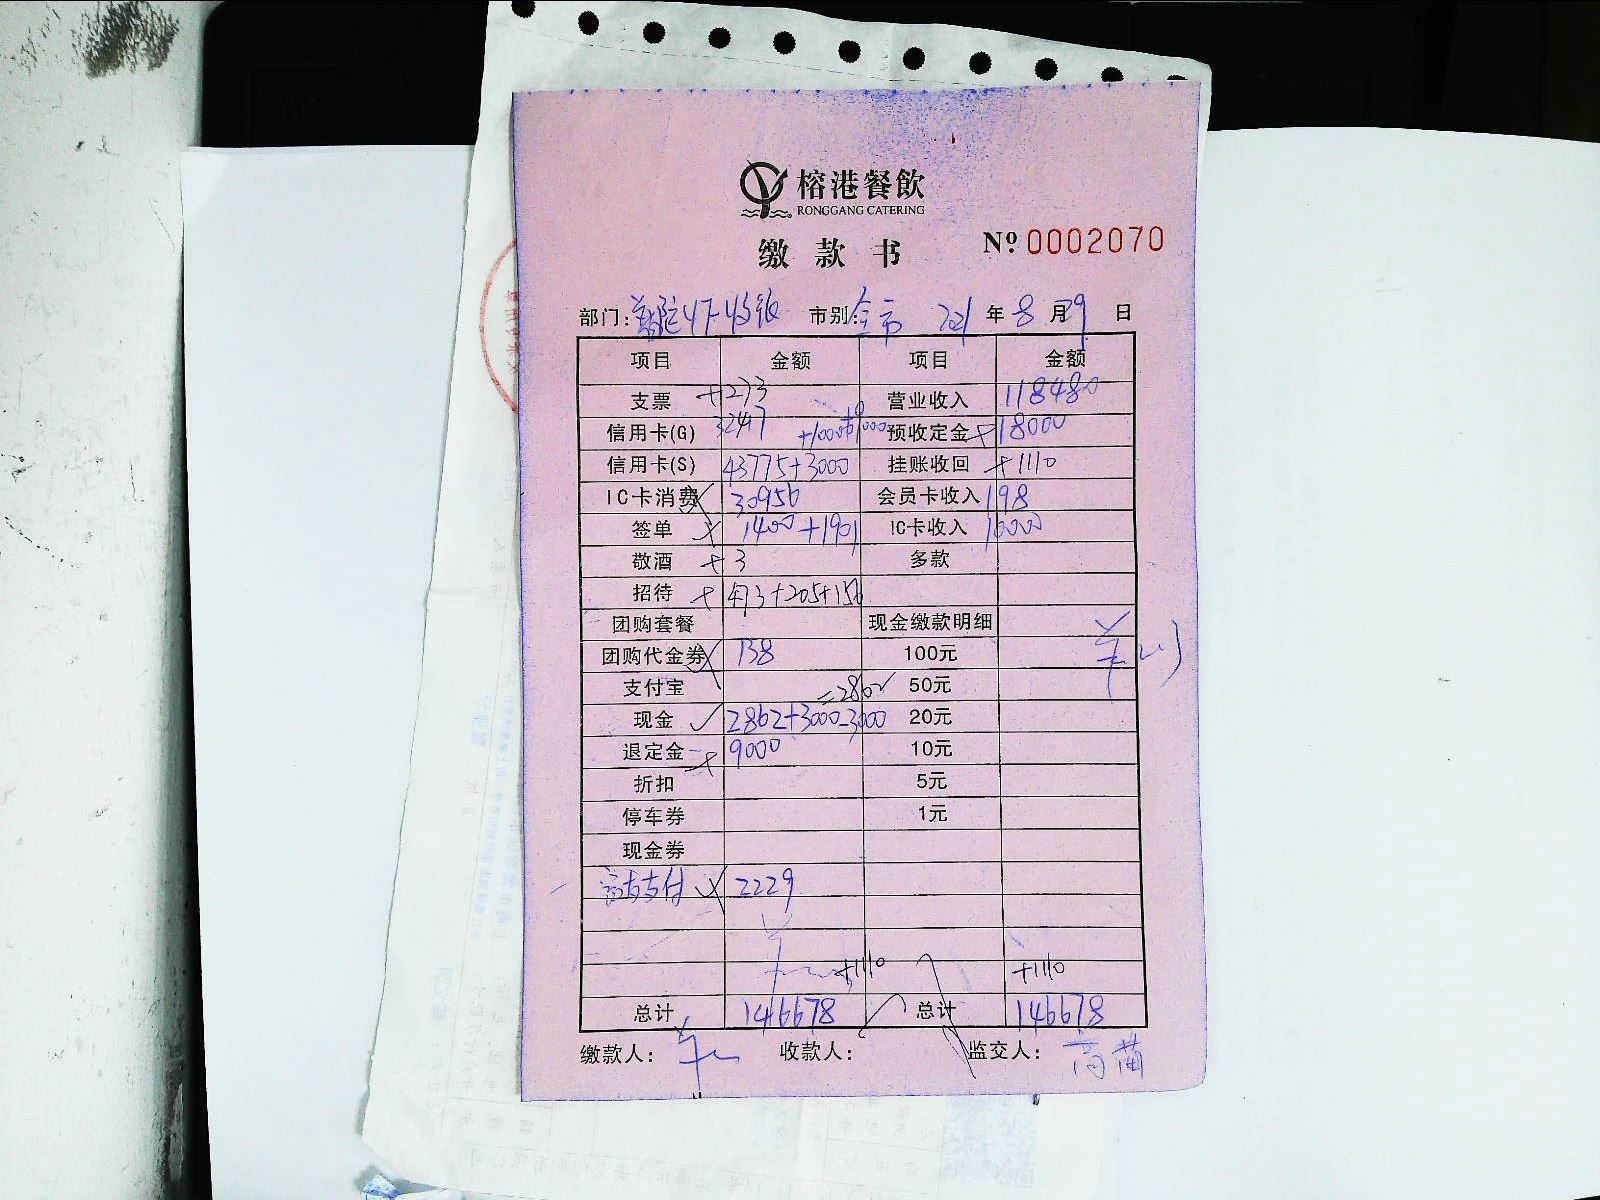 榕港餐飲
RONGGANG CATERING
缴款书 № 0002070
部门: 4下收银 市别: 全市 2021 年 8 月 29 日
项目 金额 项目 金额
支票 +273 营业收入 118480
信用卡(G) 32417 +1000+1000 预收定金 +18000
信用卡(S) 43775+3000 挂账收回 +1110
IC卡消费 30956 会员卡收入 198
签单 1400+1901 IC卡收入 10000
敬酒 +3 多款
招待 + 473+205+156
团购套餐 现金缴款明细
团购代金券 138 100元
支付宝 =2862 50元
现金 2862+3000-3000 20元
退定金 9000 10元
折扣 5元
停车券 1元
现金券
支付 2229
+1110 +1110
总计 146678 总计 146678
缴款人: 收款人: 监交人: 高苗